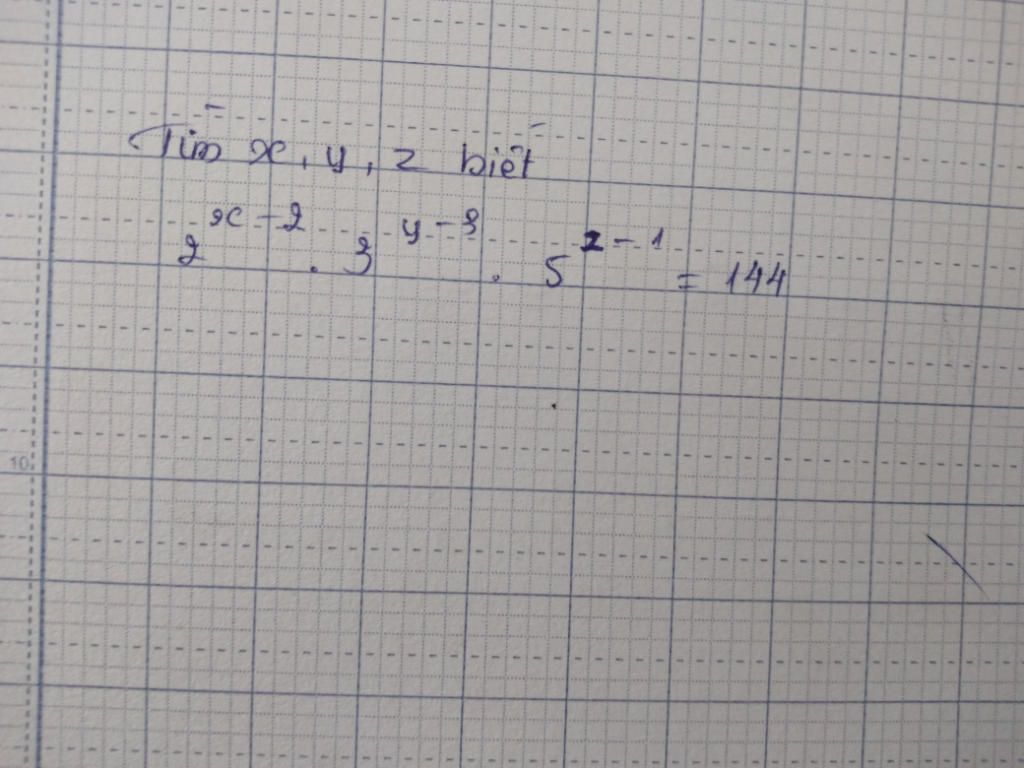 Tìm x, y, z biết
2^{x-2} . 3^{y-3} . 5^{z-1} = 144
10